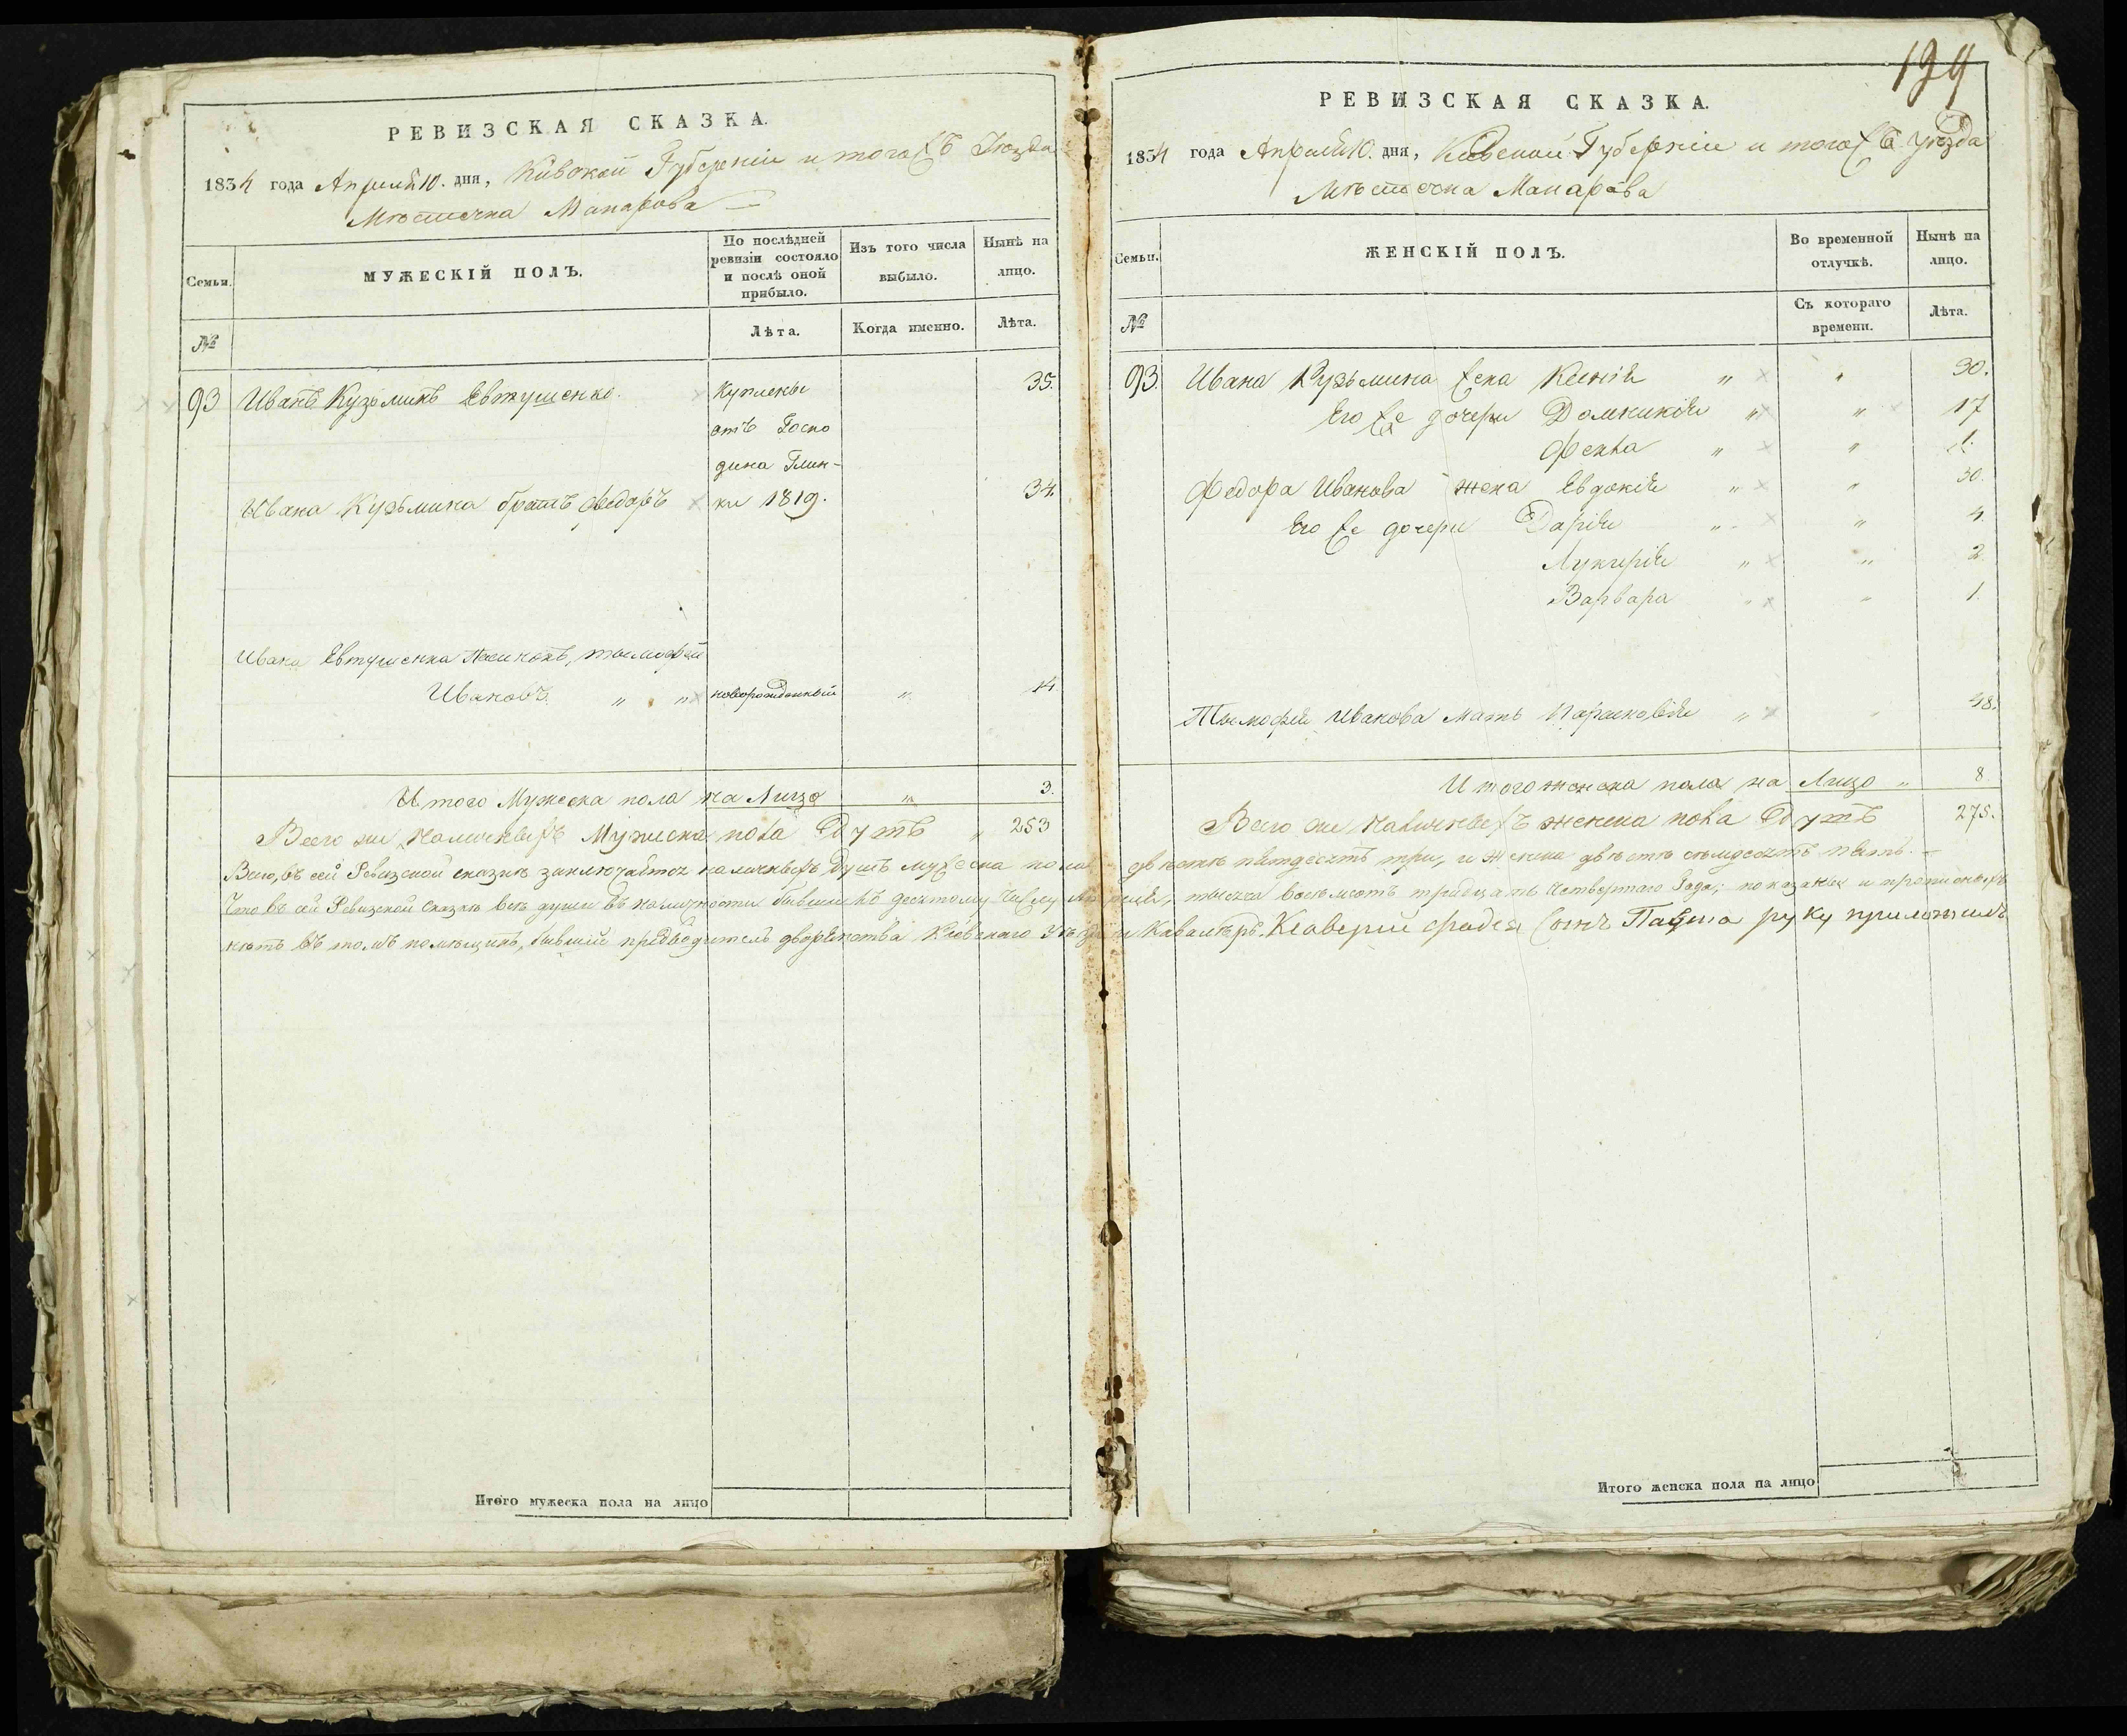 РЕВИЗСКАЯ СКАЗКА.
1834 года Апреля 10. дня, Кіевской Губерніи и тогожъ Уезда
Мѣстечка Макарова
Семьи.
МУЖЕСКІЙ ПОЛЪ.
По послѣдней ревизіи состояло и послѣ оной прибыло.
Изъ того числа выбыло.
Нынѣ на лицо.
№
Лѣта.
Когда именно.
Лѣта.
93 Иванъ Кузьминъ Евтушенко. Куплены 35.
отъ Госпо
дина Глин-
Ивана Кузьмина братъ Федоръ ки 1819. 34.
Ивана Евтушенка
Ивановъ. " " новорожденный " 14.
Итого Мужеска пола на Лицо " 3.
Всего же наличныхъ Мужеска пола Душъ " 253
Итого мужеска пола на лицо
194
РЕВИЗСКАЯ СКАЗКА.
1834 года Апреля 10. дня, Кіевской Губерніи и тогожъ Уезда
Мѣстечка Макарова
Семьи.
ЖЕНСКІЙ ПОЛЪ.
Во временной отлучкѣ.
Нынѣ на лицо.
№
Съ котораго времени.
Лѣта.
93. Ивана Кузьмина жена Ксенія " " 30.
Его же дочери Домникія " " 17
Фекла " " 1.
Федора Иванова жена Евдокія " " 30.
Его же дочери Дарія " " 4.
Лукерія " " 2.
Варвара " " 1.
Тымофея Иванова Мать Парасковія " " 48.
Итого женска пола на Лицо " 8
Всего же наличныхъ женска пола Душъ 275.
Всего, въ сей Ревизской сказке заключается наличныхъ душъ мужеска пола двѣсте пятдесятъ три, и женска двѣсте семдесятъ пять.
Что въ сей Ревизской сказке все души въ наличности бывшие къ десятому числу Апреля, тысяча восемсотъ тридцать четвертаго Года; показаны и прописныхъ
нѣтъ въ томъ помѣщикъ, бывшій предводитель дворянства Кіевскаго Уезда и Кавалеръ. Ксаверій сынъ руку приложилъ
Итого женска пола на лицо